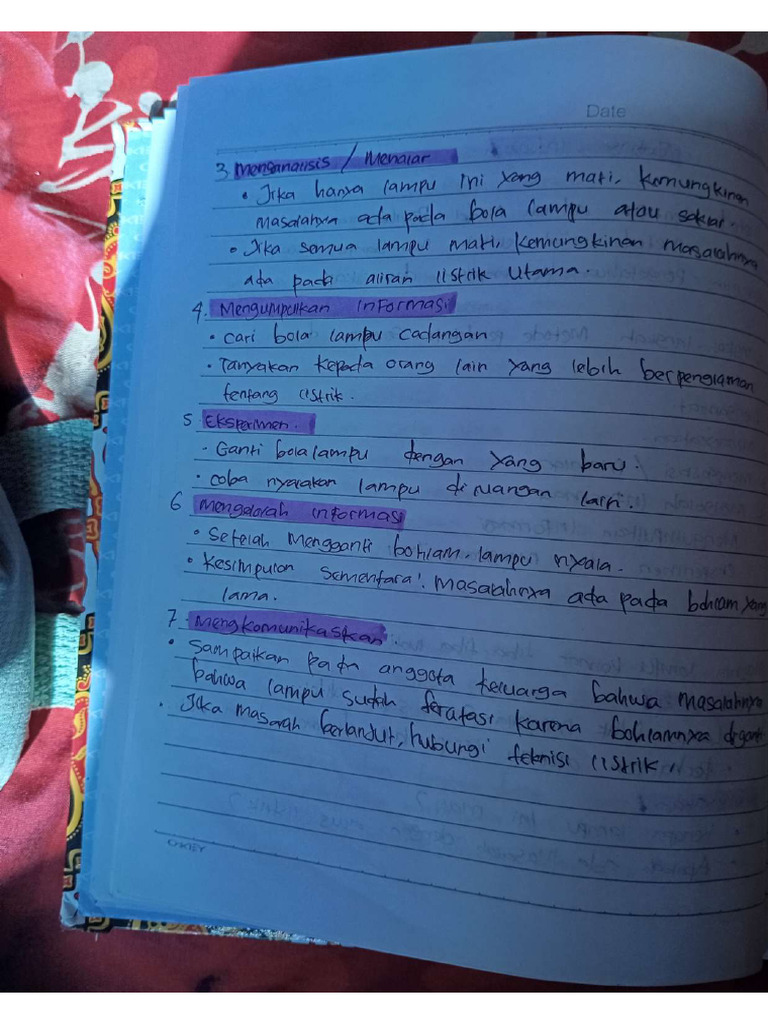 Date
3. Menganalisis / Menalar
• Jika hanya lampu ini yang mati, kemungkinan
masalahnya ada pada bola lampu atau saklar.
• Jika semua lampu mati, kemungkinan masalahnya
ada pada aliran listrik utama.
4. Mengumpulkan informasi
• Cari bola lampu cadangan
• Tanyakan kepada orang lain yang lebih berpenglaman
tentang listrik.
5 Eksperimen.
- Ganti bola lampu dengan yang baru.
• Coba nyalakan lampu di ruangan lain.
6 Mengolah informasi
• Setelah mengganti bohlam, lampu nyala.
• Kesimpulan sementara: masalahnya ada pada bohlam yang
lama.
7. Mengkomunikasikan
• Sampaikan pada anggota keluarga bahwa masalahnya
bahwa lampu sudah teratasi karena bohlamnya diganti
• Jika masalah berlanjut, hubungi teknisi listrik.